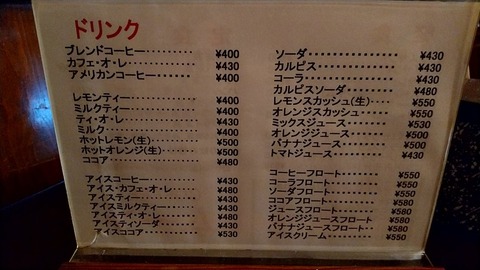 ドリンク
ブレンドコーヒー………… ¥400
カフェ・オ・レ………… ¥430
アメリカンコーヒー…… ¥400
レモンティー………… ¥400
ミルクティー………… ¥400
ティ・オ・レ………… ¥430
ミルク………… ¥400
ホットレモン(生)…… ¥500
ホットオレンジ(生)…… ¥500
ココア………… ¥480
アイスコーヒー………… ¥430
アイス・カフェ・オ・レ…… ¥480
アイスティー………… ¥430
アイスミルクティー…… ¥430
アイスティ・オ・レ…… ¥480
アイスティソーダ…… ¥430
アイスココア………… ¥530
ソーダ………… ¥430
カルピス………… ¥430
コーラ………… ¥430
カルピスソーダ………… ¥480
レモンスカッシュ(生)…… ¥550
オレンジスカッシュ…… ¥550
ミックスジュース…… ¥530
オレンジジュース…… ¥500
バナナジュース…… ¥500
トマトジュース…… ¥430
コーヒーフロート…… ¥550
コーラフロート…… ¥550
ソーダフロート…… ¥550
ココアフロート…… ¥580
ジュースフロート…… ¥580
オレンジジュースフロート ¥580
バナナジュースフロート‥ ¥580
アイスクリーム…… ¥550